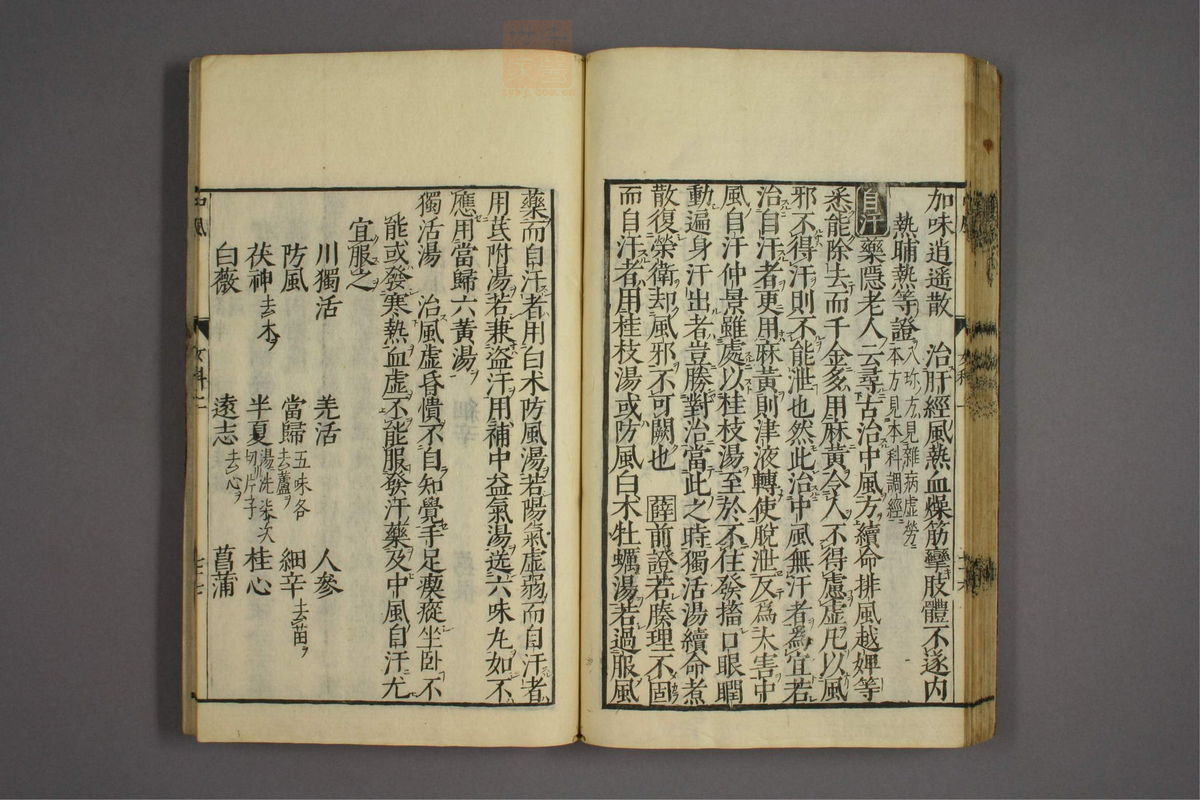 加味逍遥散　治肝經風熱血燥筋攣肢體不遂内
熱晡熱等證
八珎方見雜病虚勞
本方見本科調經
自汗 藥隠老人云尋古治中風方續命排風越婢等
悉能除去而千金多用麻黄令人不得慮虚凡以風
邪不得汗則不能泄也然此治中風無汗者爲宜若
治自汗者更用麻黄則津液轉使脫泄反爲大害中
風自汗仲景雖處以桂枝湯至於不住發搐口眼瞤
動遍身汗出者豈勝對治當此之時獨活湯續命煮
散復榮衛却風邪不可闕也　薛前證若腠理不固
而自汗者用桂枝湯或防風白术牡蠣湯若過服風
藥而自汗者用白术防風湯若陽氣虚弱而自汗者
用芪附湯若兼盗汗用補中益氣湯送六味丸如不
應用當歸六黄湯
獨活湯　治風虚昏憒不自知覺手足瘈瘲坐卧不
能或發寒熱血虚不能服發汗藥及中風自汗尤
宜服之
川獨活　羌活　人參
防風　當歸 五味各去蘆ヲ　細辛 去苗ヲ
茯神 去木ヲ　半夏 湯洗柒次切片子　桂心
白薇　遠志 去心ヲ　菖蒲
中風
女科二
二十七